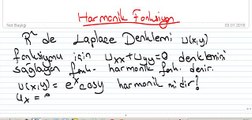 Harmonik Fonksiyon
R² de Laplace Denklemi u(x,y)
fonksiyonu için Uxx+Uyy=0 denklemini
sağlayan fonk. harmonik fonk. denir.
u(x,y) = eˣcosy harmonik midir?
Ux = e